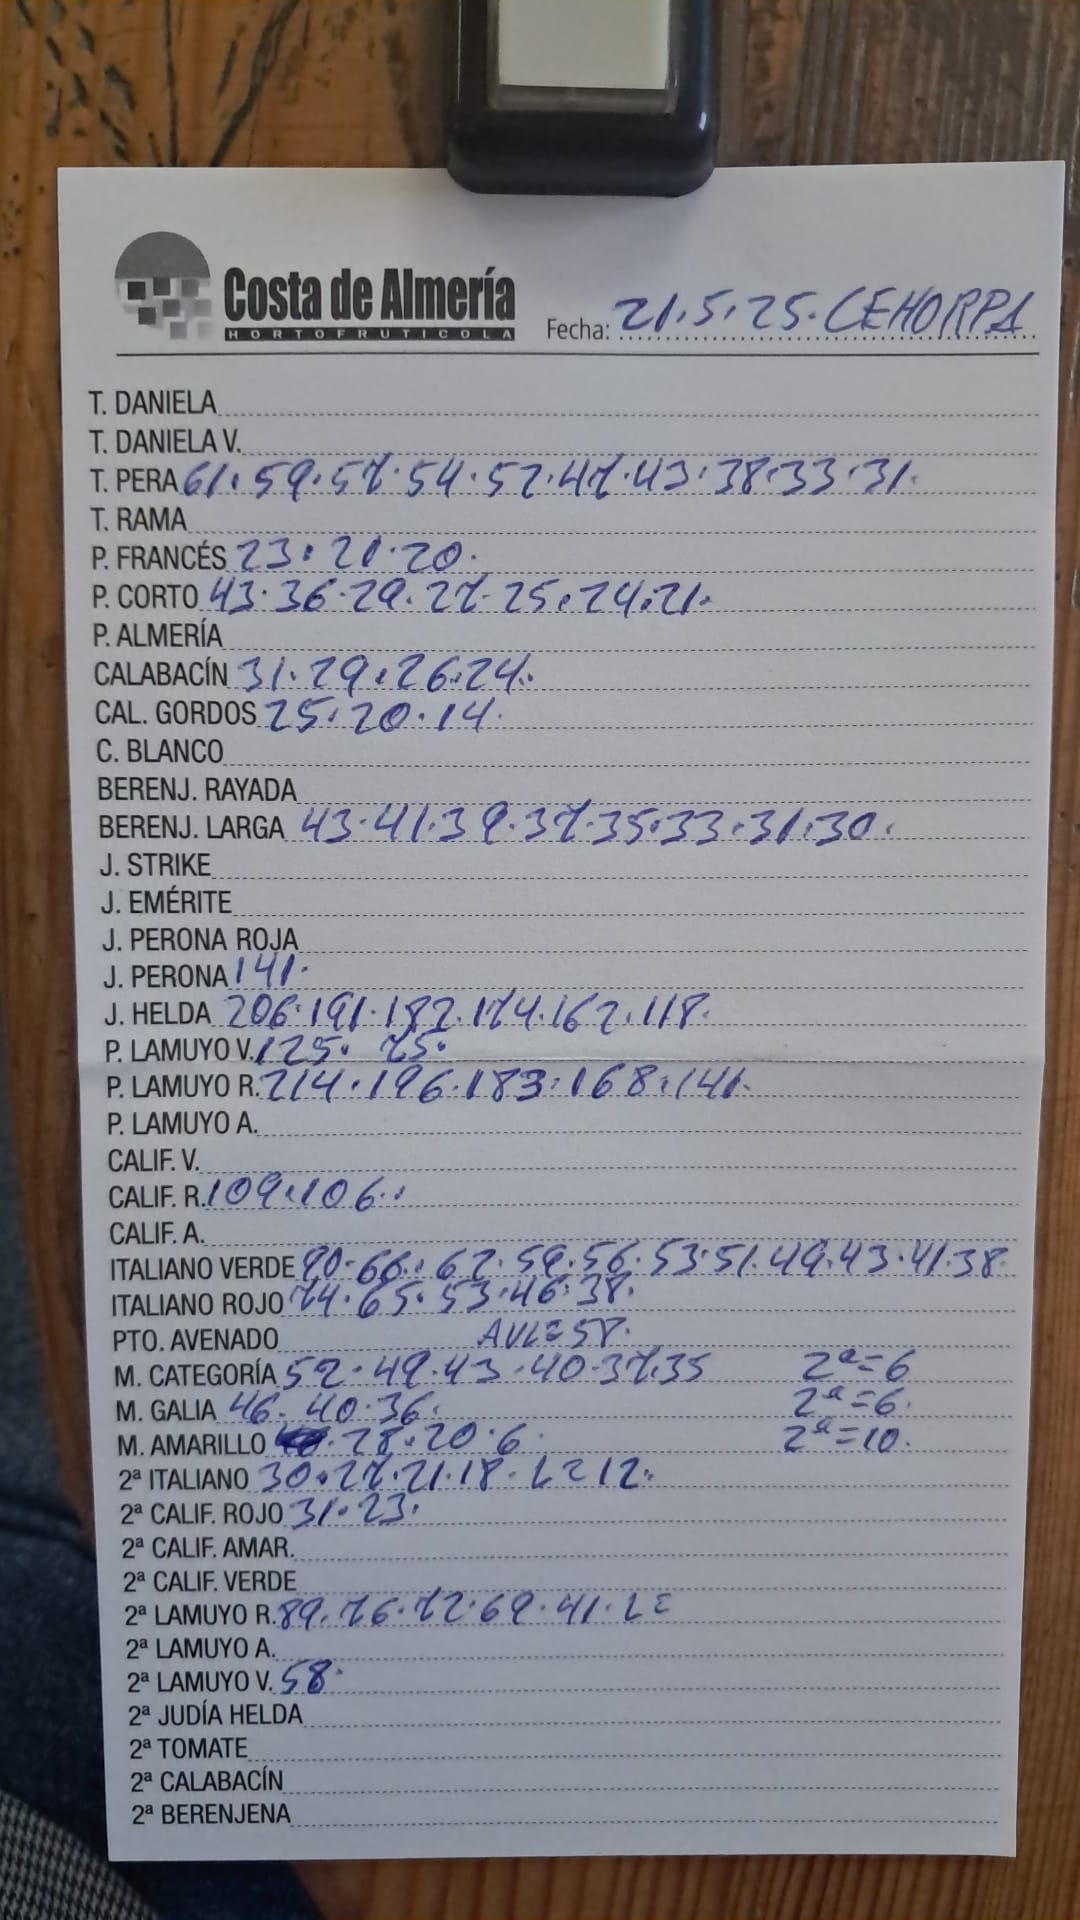 Costa de Almería
HORTOFRUTICOLA
Fecha: 21.5.25. CEHORPA
T. DANIELA
T. DANIELA V.
T. PERA 61.59.57.54.52.47.43.38.33.31.
T. RAMA
P. FRANCÉS 23.21.20.
P. CORTO 43.36.29.27.25.24.21.
P. ALMERÍA
CALABACÍN 31.29.26.24.
CAL. GORDOS 25.20.14.
C. BLANCO
BERENJ. RAYADA
BERENJ. LARGA 43.41.39.37.35.33.31.30.
J. STRIKE
J. EMÉRITE
J. PERONA ROJA
J. PERONA 141.
J. HELDA 206.191.182.174.162.118.
P. LAMUYO V. 125. 75.
P. LAMUYO R. 214.196.183.168.141.
P. LAMUYO A.
CALIF. V.
CALIF. R. 109.106..
CALIF. A.
ITALIANO VERDE 90.66.62.59.56.53.51.49.43.41.38.
ITALIANO ROJO 74.65.53.46.38.
PTO. AVENADO AVE=58.
M. CATEGORÍA 52.49.43.40.37.35 2ª=6
M. GALIA 46.40.36. 2ª=6.
M. AMARILLO .28.20.6. 2ª=10.
2ª ITALIANO 30.27.21.18. L=12.
2ª CALIF. ROJO 31.23.
2ª CALIF. AMAR.
2ª CALIF. VERDE
2ª LAMUYO R. 89.76.72.69.41.L=
2ª LAMUYO A.
2ª LAMUYO V. 58.
2ª JUDÍA HELDA
2ª TOMATE
2ª CALABACÍN
2ª BERENJENA